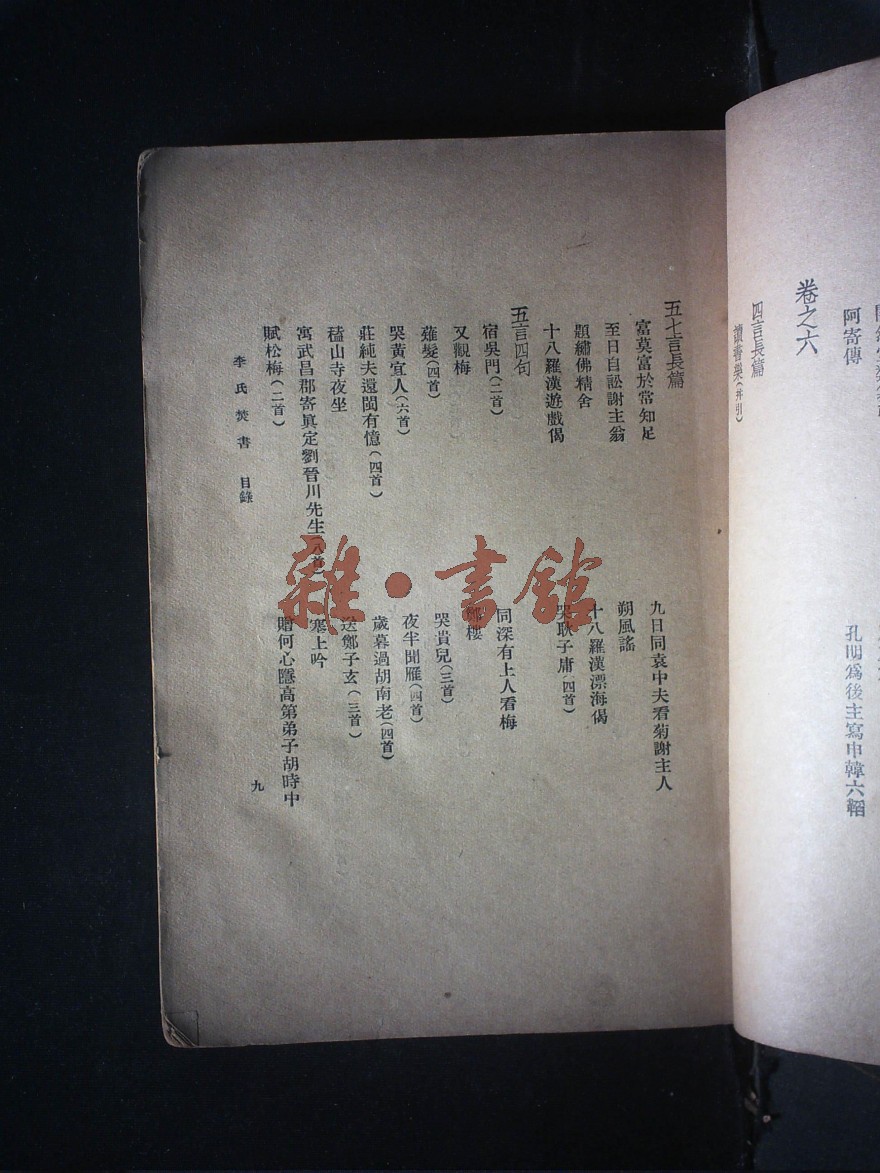 阿寄傳
孔明爲後主寫申韓六韜
卷之六
四言長篇
讀書樂(幷引)
五七言長篇
富莫富於常知足
九日同袁中夫看菊謝主人
至日自訟謝主翁
朔風謠
題繡佛精舍
十八羅漢漂海偈
十八羅漢遊戲偈
哭耿子庸(四首)
五言四句
宿吳門(二首)
同深有上人看梅
又觀梅
鄭樓
薙髮(四首)
哭貴兒(三首)
哭黃宜人(六首)
夜半聞雁(四首)
莊純夫還閩有憶(四首)
歲暮過胡南老(四首)
𥡴山寺夜坐
送鄭子玄(三首)
寓武昌郡寄眞定劉晉川先生(八首)
塞上吟
賦松梅(二首)
贈何心隱高第弟子胡時中
李氏焚書 目錄
九
雜·書館